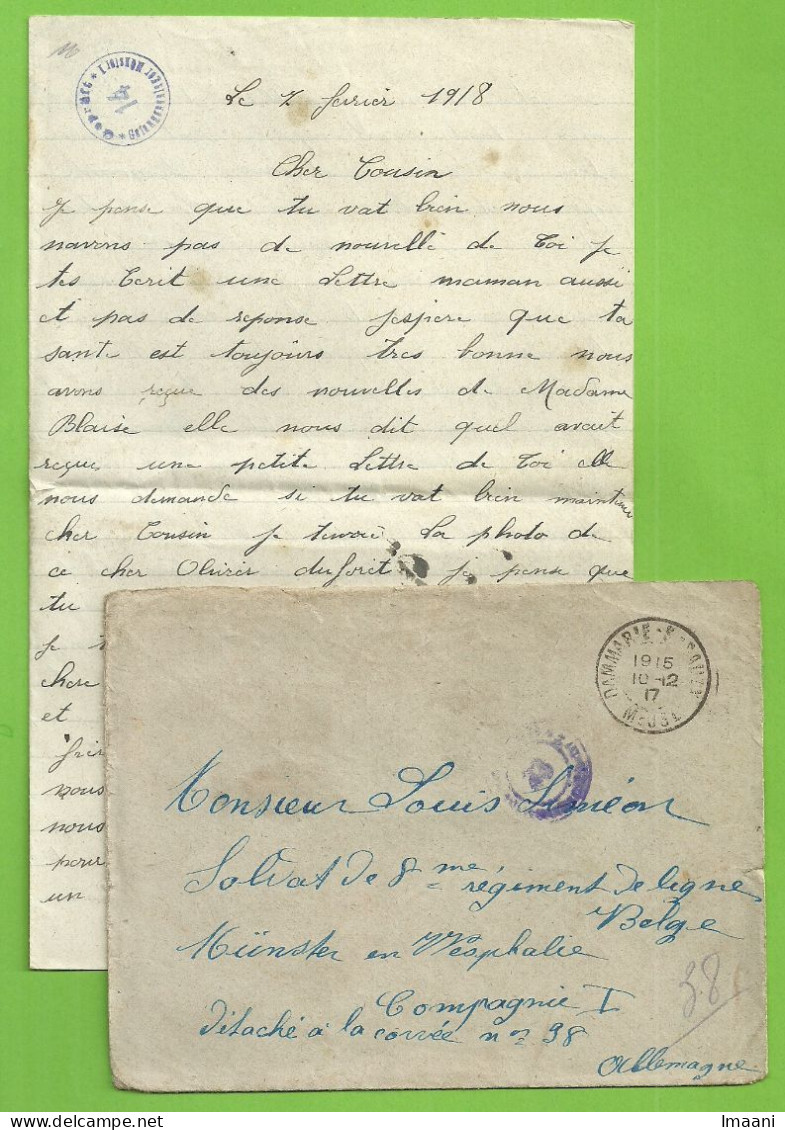 Le 7 fevrier 1918
Cher Cousin
Je pense que tu vat bien nous
navons pas de nouvelle de toi je
tes Ecrit une Lettre maman aussi
et pas de reponse jespere que ta
sante est toujours tres bonne nous
avons reçue des nouvelles de Madame
Blaise elle nous dit quel avait
reçue une petite Lettre de toi elle
nous demande si tu vat bien maintenu
cher Cousin je tenvoi La photo de
ce cher Olivier duforêt je pense que
tu
je
chere
et
nous
nous
pour
un
DAMMARIE-S
1915
10-12
17
Monsieur Louis Siméon
Soldat de 8me régiment de ligne
Belge
Münster en Wesphalie
Compagnie I
Détaché à la corvée no 98
Allemagne
98
14
Imaani